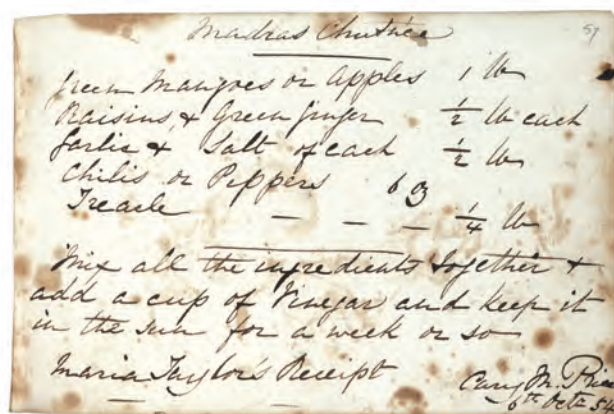 Madras Chutnee
57
Green Mangoes or Apples 1 lb
Raisins, & Green ginger ½ lb each
Garlic & Salt of each ½ lb
Chilis or Peppers 6 oz
Treacle — — — ¼ lb
Mix all the ingredients together &
add a cup of Vinegar and keep it
in the sun for a week or so
Maria Taylor's Receipt
Cary M.
6th Octr